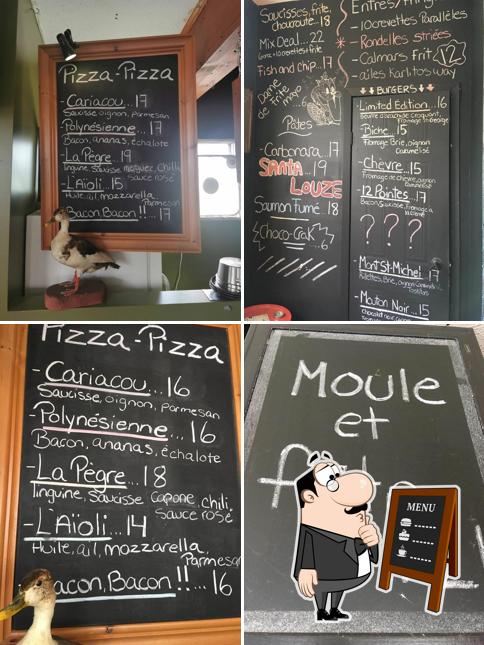 Pizza-Pizza
-Cariacou...17
Saucisse oignon, parmesan
-Polynésienne...17
Bacon, ananas, échalote
-La Pègre...19
linguine, Saucisse merguez, chili,
Sauce rosé
-L'Aïoli...15
Huile, ail, mozzarella,
Parmesan
-Bacon, Bacon!!...17
Saucisses, frites,
choucroute...18
Mix Deal...22
Fish and chip...17
Dame
de
frite
mayo
Pâtes
-Carbonara...17
SANTA...19
LOUZE
Saumon Fumé...18
Choco-Crak
6
Entrées/
-10 crevettes Parallèles
-Rondelles striées
-Calmars frit 12
-ailes Karltos way
BURGERS
-Limited Edition...16
-Biche...15
Fromage Brie, oignon
Caramélisé
-Chèvre...15
Fromage de chèvre, oignon
-12 Pointes...17
Bacon, Saucisse, Fromage à
???
-Mont St-Michel 17
-Mouton Noir...15
Pizza-Pizza
-Cariacou...16
Saucisse, oignon, parmesan
-Polynésienne...16
Bacon, ananas, échalote
-La Pègre...18
linguine, Saucisse Capone, chili,
Sauce rosé
-L'Aïoli...14
Huile, ail, mozzarella,
Parmesan
acon, Bacon!!...16
Moule
et
MENU